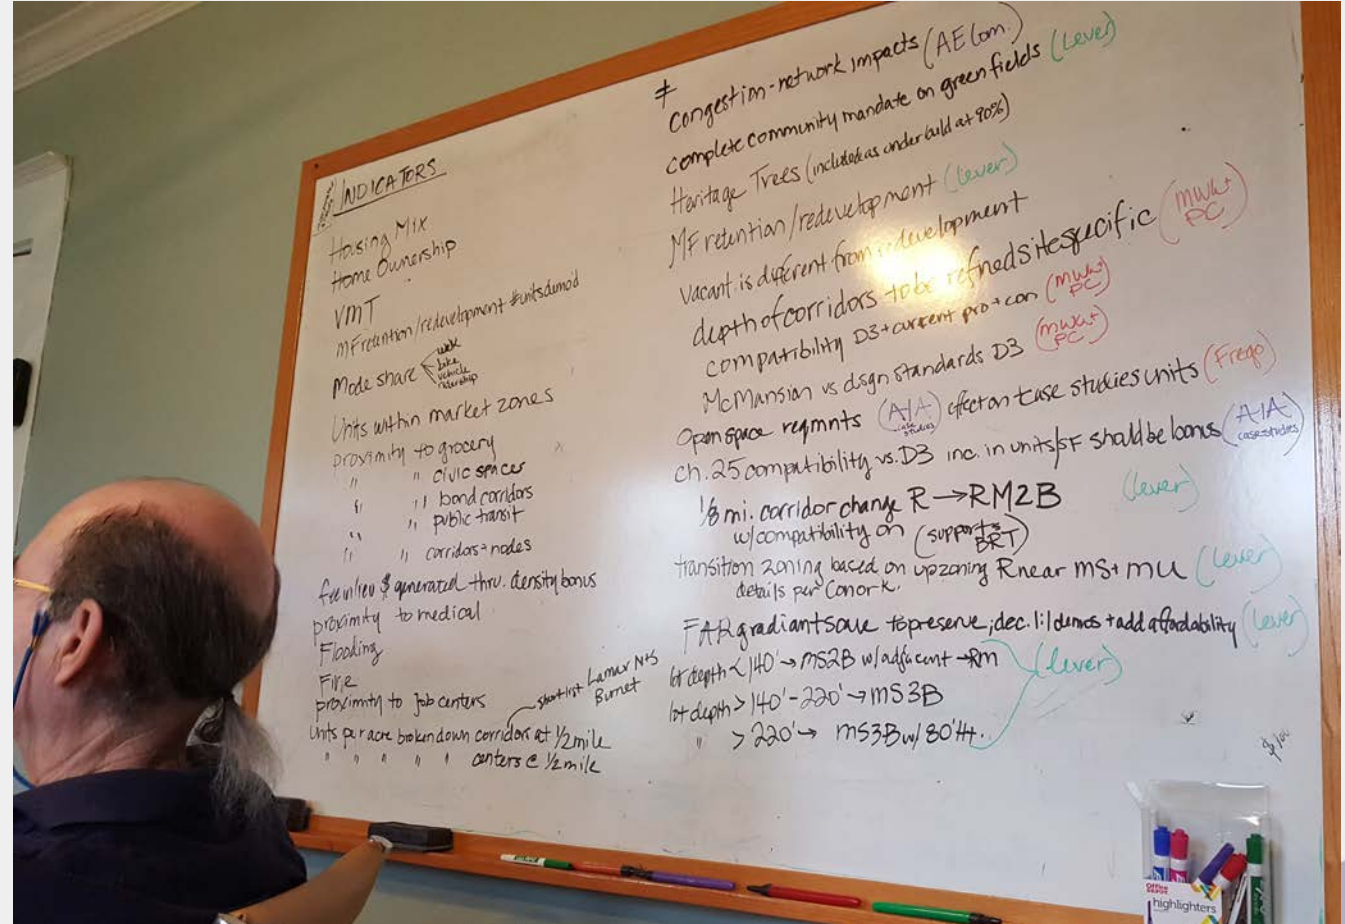 INDICATORS
Housing Mix
Home Ownership
VMT
MF retention/redevelopment #unitsdemod
Mode share
walk
bike
vehicle
ridership
Units within market zones
proximity to grocery
" " civic spaces
" " bond corridors
" " public transit
" " corridors + nodes
fee in lieu $ generated thru. density bonus
proximity to medical
Flooding
Fire
proximity to Job centers
short list Lamar N+S
Burnet
Units per acre broken down corridors at 1/2 mile
" " " " " centers @ 1/2 mile
≠
Congestion-network impacts (AECom.)
complete community mandate on green fields (Lever)
Heritage Trees (included as under build at 90%)
MF retention/redevelopment (lever)
Vacant is different from redevelopment
depth of corridors to be refined site specific (MWK+
PC)
compatibility D3 + current pro + con (MWK+
PC)
McMansion vs dsgn standards D3 (MWK+
PC)
Open space reqmnts (AIA
case
studies) effect on case studies units (Frego)
ch. 25 compatibility vs. D3 inc. in units/SF should be bonus (AIA
case studies)
1/8 mi. corridor change R → RM2B (lever)
w/compatibility on (supports
BRT)
transition zoning based on upzoning R near MS + MU (Lever)
details per Conor K.
FAR gradiant to preserve, dec. 1:1 demos + add affordability (Lever)
lot depth < 140' → MS2B w/adjacent → RM (lever)
lot depth > 140' - 220' → MS3B
" > 220' → MS3B w/ 80' Ht.
OFFICE DEPOT
highlighters